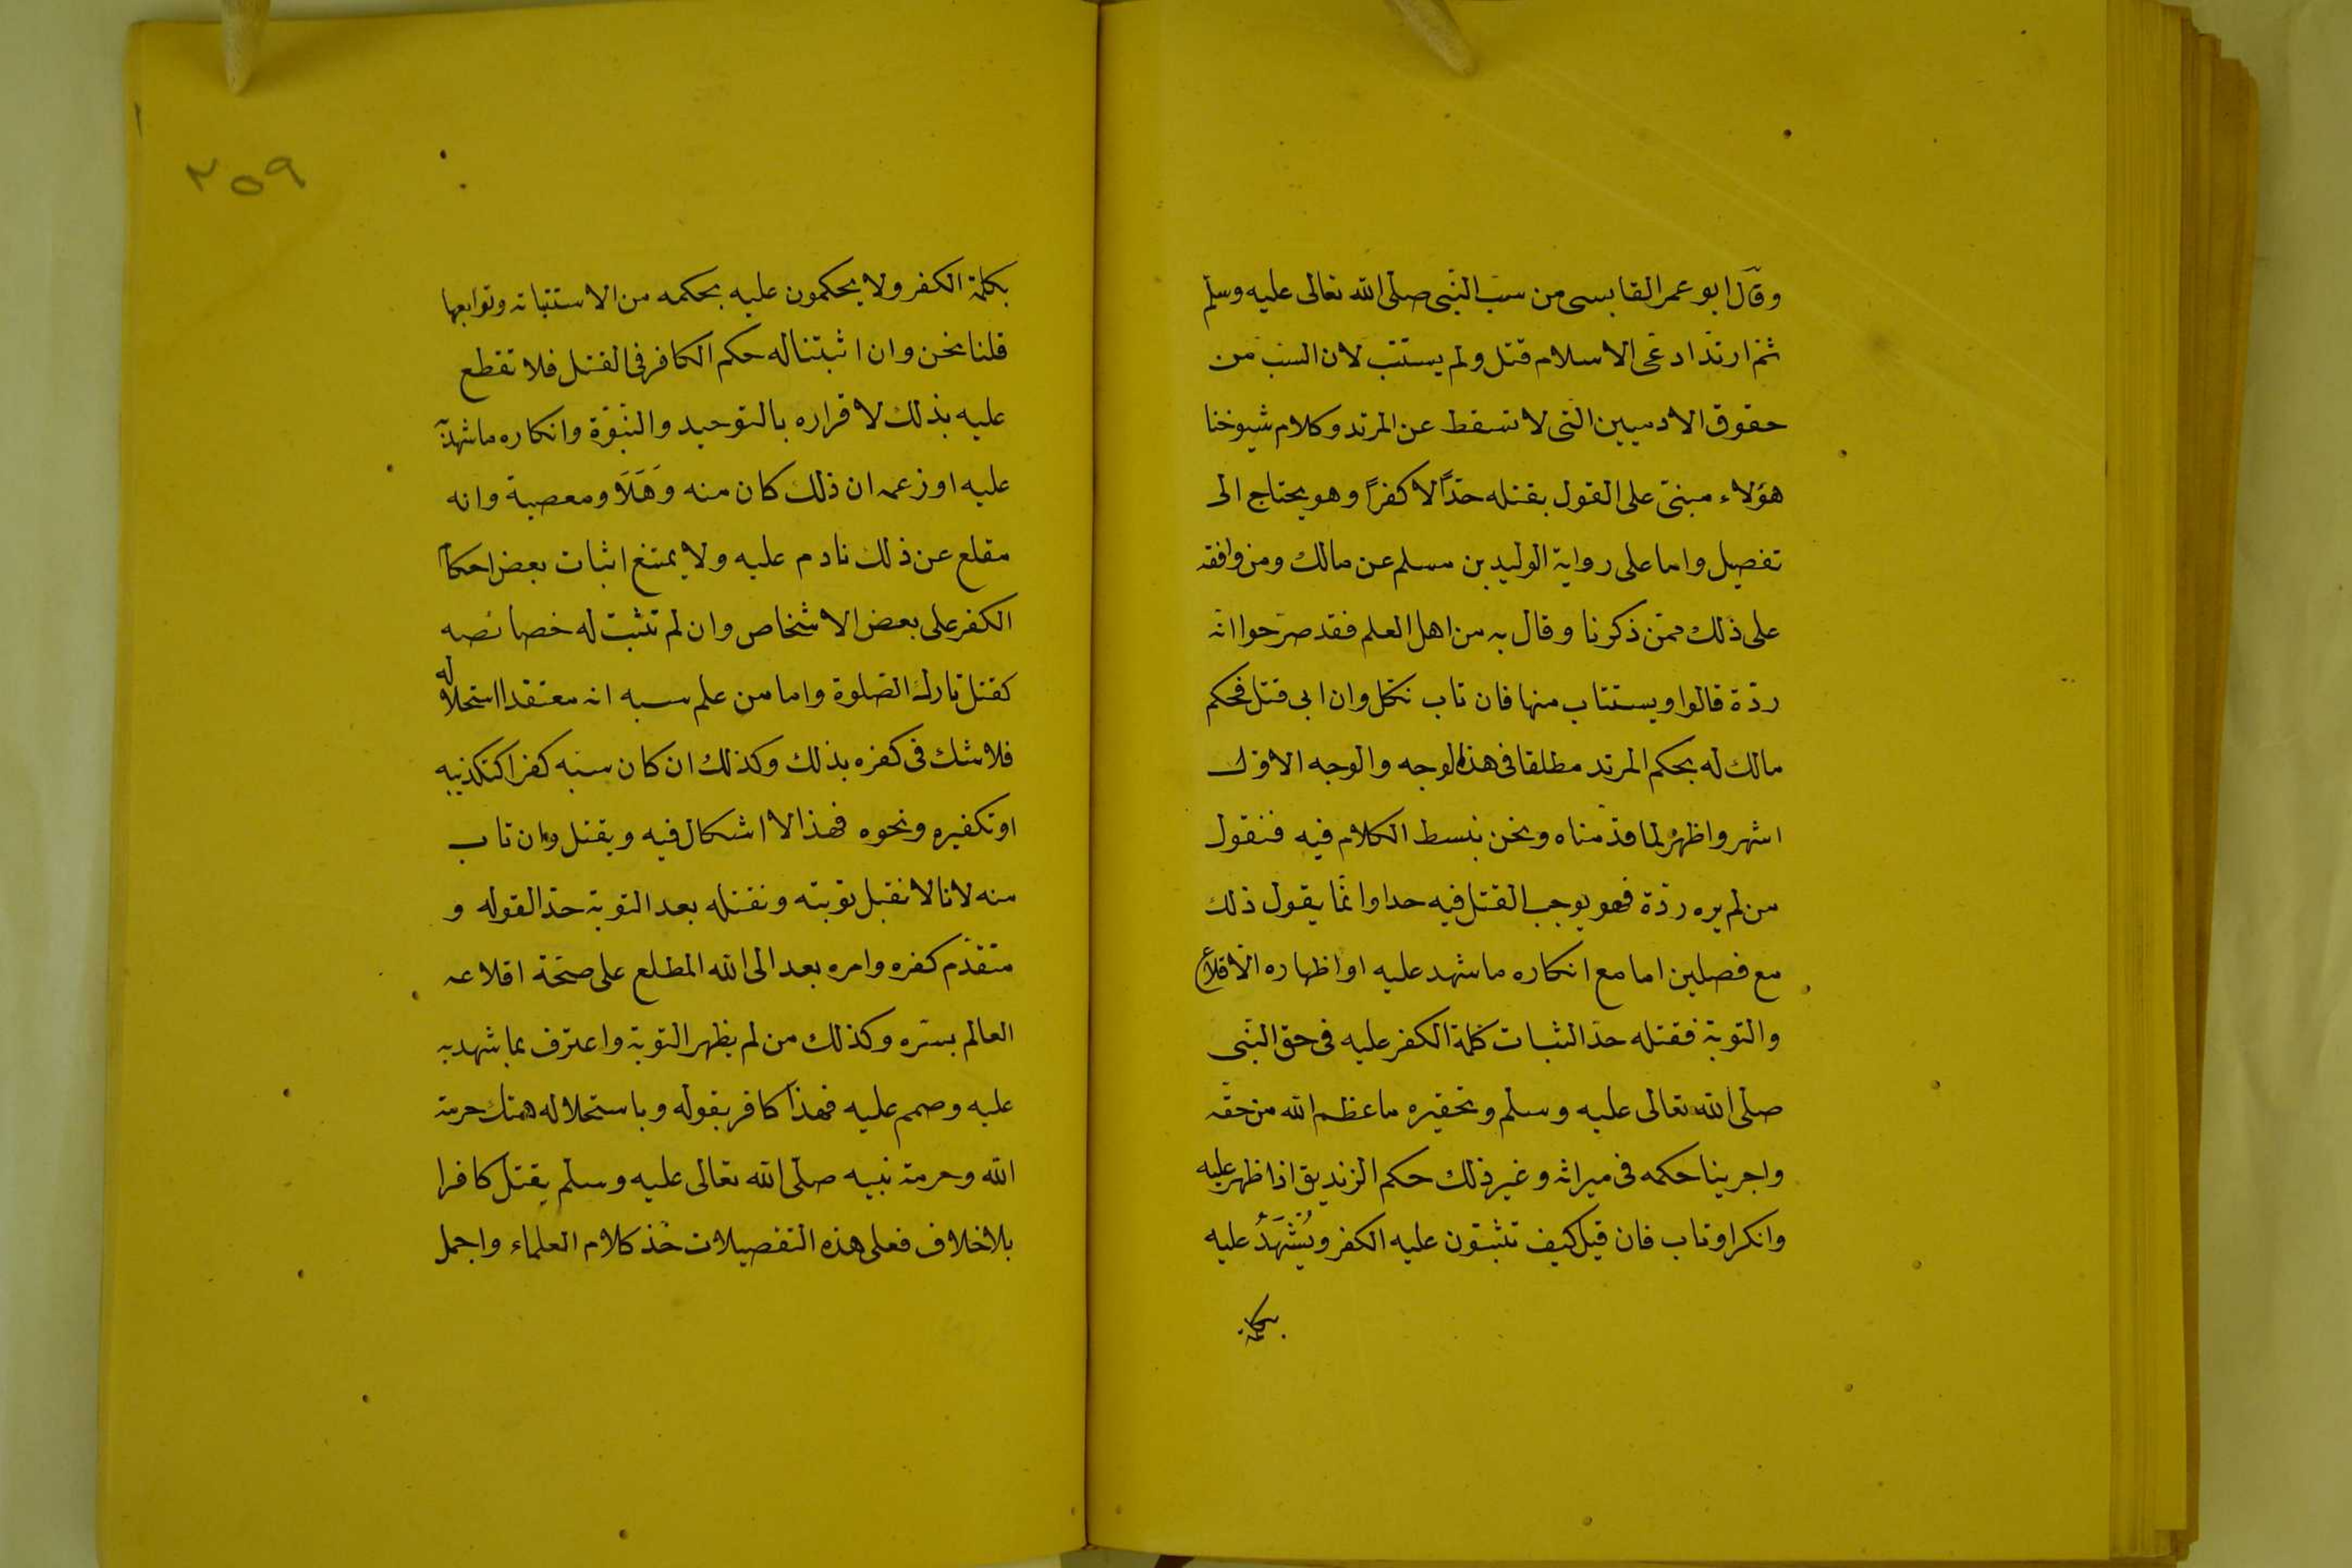 وقال ابو عمر القابسى من سب النبى صلى الله تعالى عليه وسلم
ثم ارتد ادعى الاسلام قتل ولم يستتب لان السب من
حقوق الادميين التى لا تسقط عن المرتد وكلام شيوخنا
هؤلاء مبنى على القول بقتله حدًّا لا كفرًا وهو يحتاج الى
تفصيل واما على رواية الوليد بن مسلم عن مالك ومن وافقه
على ذلك ممن ذكرنا وقال به من اهل العلم فقد صرحوا انه
ردة قالوا ويستتاب منها فان تاب نكل وان ابى قتل فحكم
مالك له بحكم المرتد مطلقا فى هذا الوجه والوجه الاول
اشهر واظهر لما قدمناه ونحن نبسط الكلام فيه فنقول
من لم يره ردة فهو يوجب القتل فيه حدا وانما يقول ذلك
مع فصلين اما مع انكاره ما شهد عليه او اظهاره الاقلاع
والتوبة فقتله حد الثبات كلمة الكفر عليه فى حق النبى
صلى الله تعالى عليه وسلم وتحقيره ما عظم الله من حقه
واجرينا حكمه فى ميراثه وغير ذلك حكم الزنديق اذا ظهر عليه
وانكر او تاب فان قيل كيف تثبتون عليه الكفر ويُشْهَدُ عليه
بكلمة
٢٥٩
بكلمة الكفر ولا يحكمون عليه بحكمه من الاستتابة وتوابعها
قلنا نحن وان اثبتنا له حكم الكافر فى القتل فلا نقطع
عليه بذلك لاقراره بالتوحيد والنبوة وانكاره ما شهد
عليه او زعمه ان ذلك كان منه وَهَلَا ومعصية وانه
مقلع عن ذلك نادم عليه ولا يمتنع اثبات بعض احكام
الكفر على بعض الاشخاص وان لم تثبت له خصائصه
كقتل تارك الصلوة واما من علم سبه انه معتقدا استحلاله
فلا شك فى كفره بذلك وكذلك ان كان سبه كفرا كتكذيبه
او تكفيره ونحوه فهذا لا اشكال فيه ويقتل وان تاب
منه لانا لا نقبل توبته ونقتله بعد التوبة حدا لقوله و
متقدم كفره وامره بعد الى الله المطلع على صحة اقلاعه
العالم بسره وكذلك من لم يظهر التوبة واعترف بما شهد به
عليه وصمم عليه فهذا كافر بقوله وباستحلاله هتك حرمة
الله وحرمة نبيه صلى الله تعالى عليه وسلم يقتل كافرا
بلا خلاف فعلى هذه التفصيلات خذ كلام العلماء واحمل